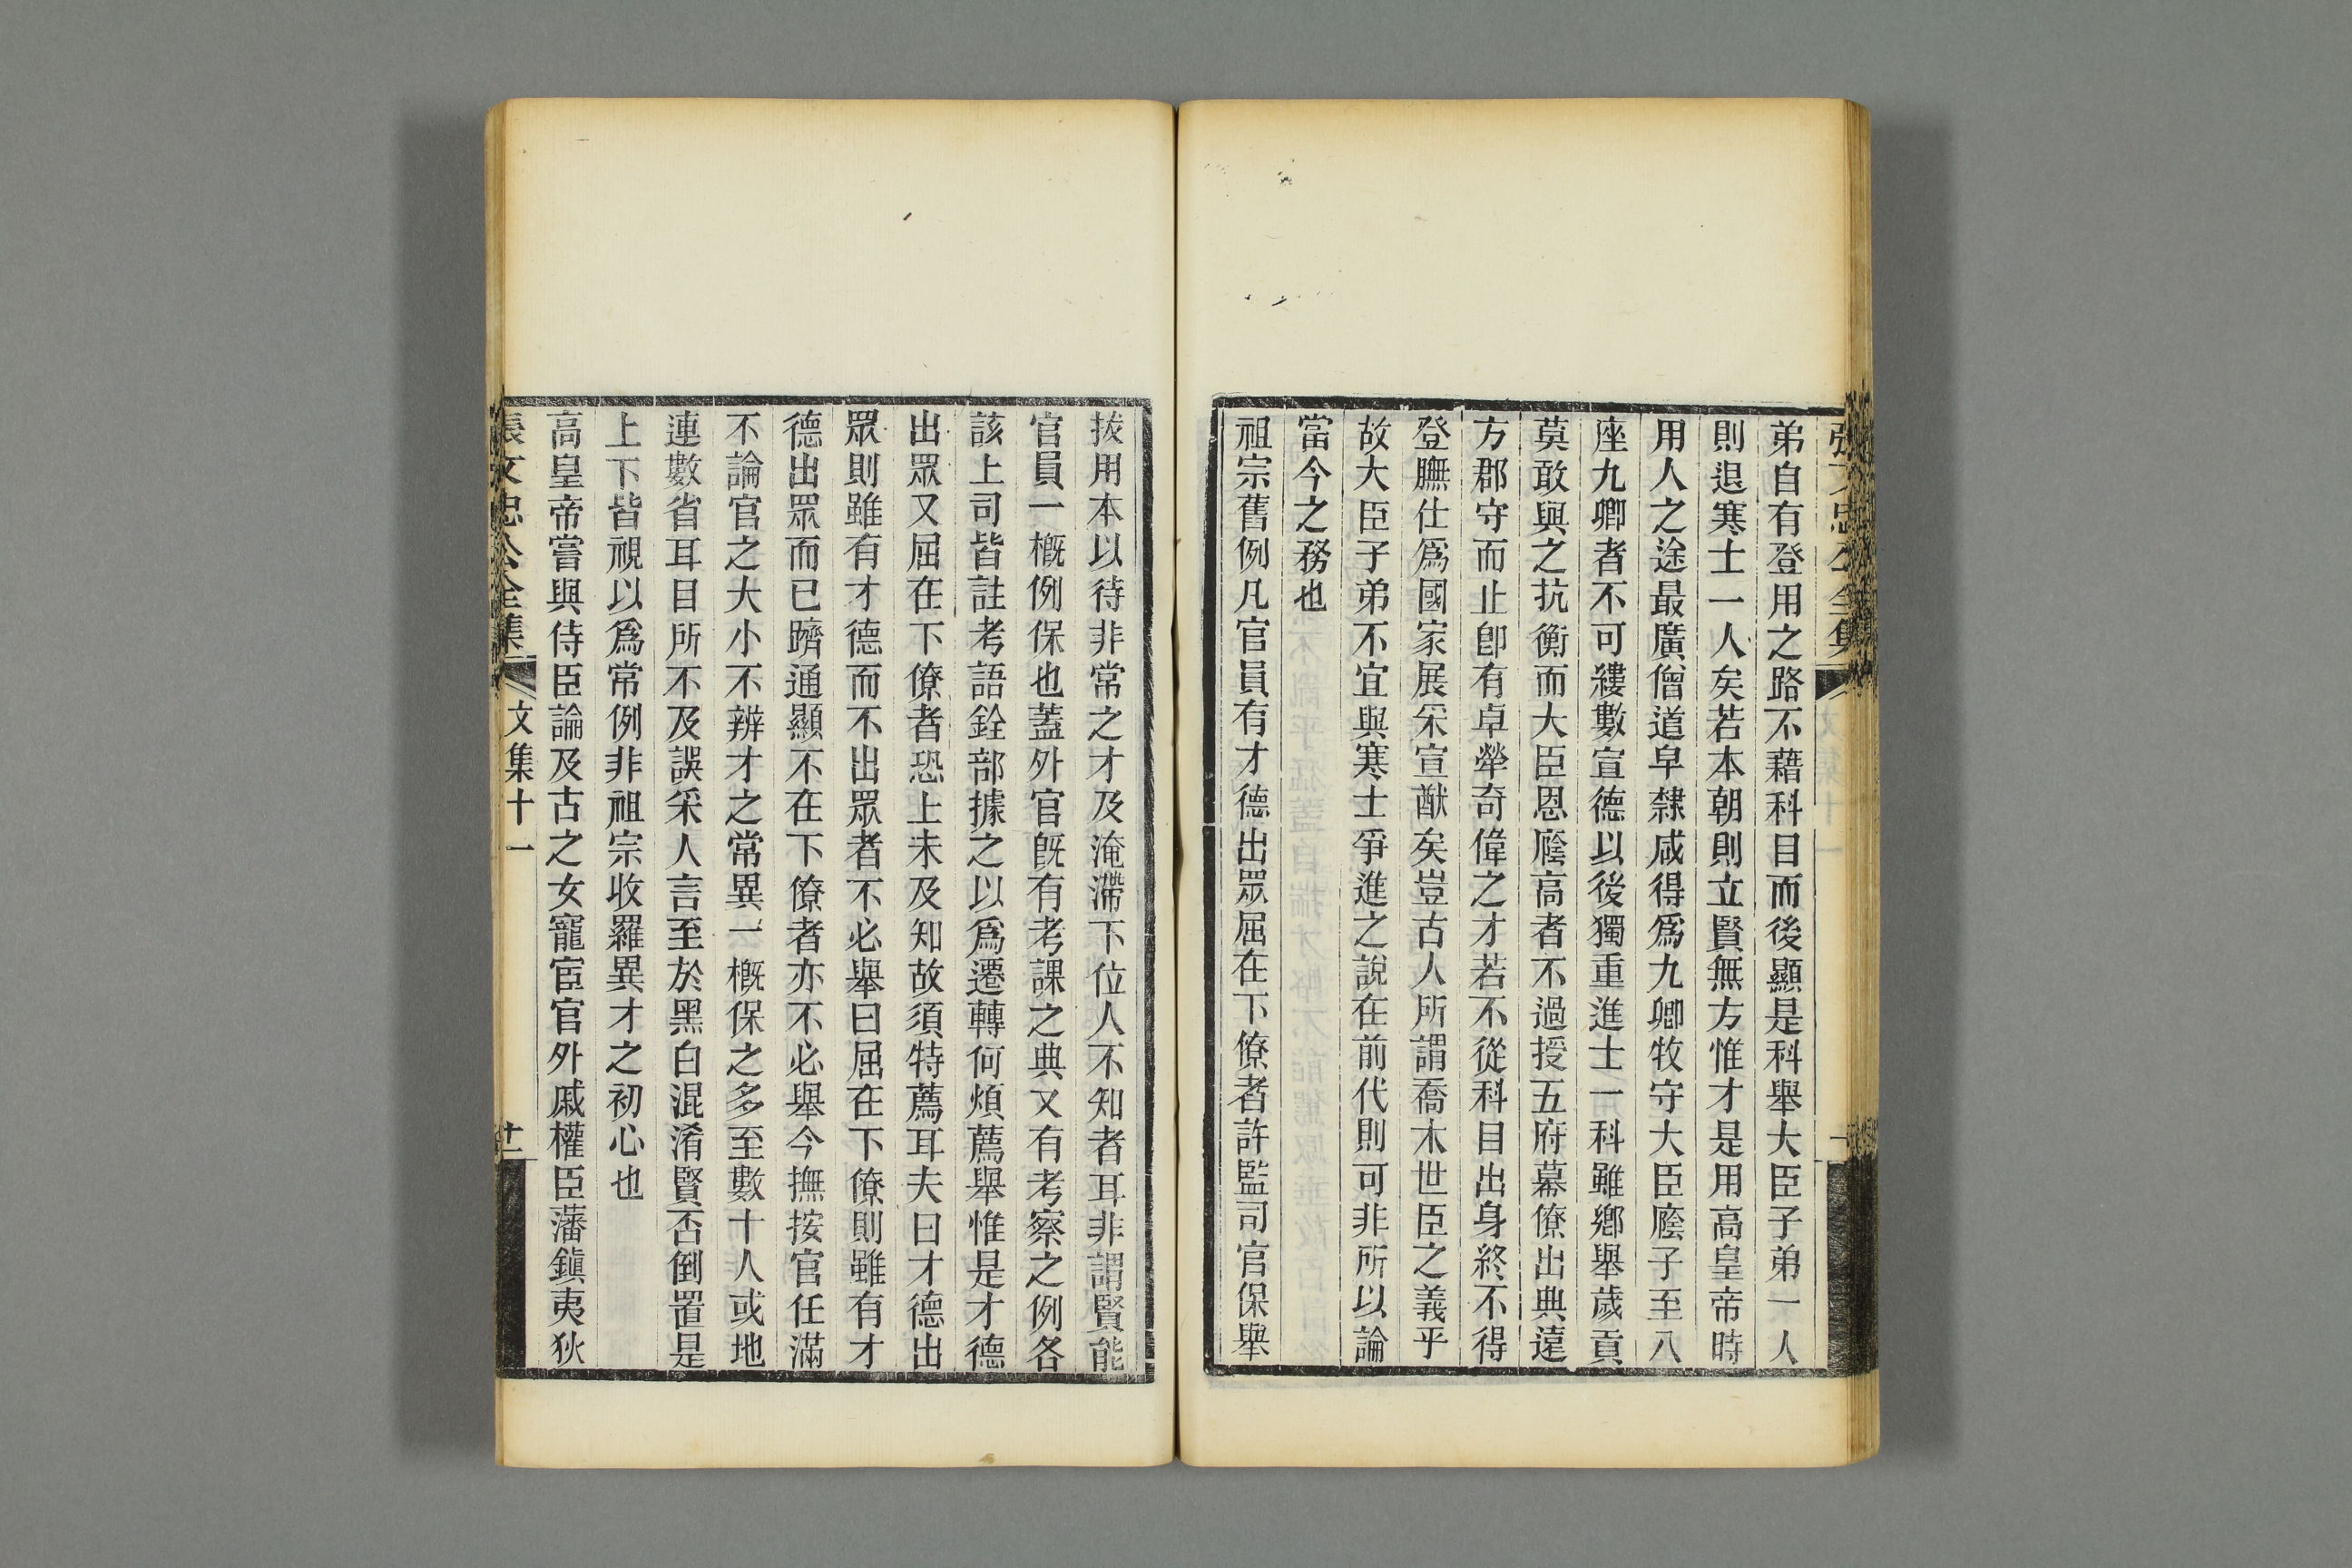 弟自有登用之路不藉科目而後顯是科舉大臣子弟一人
則退寒士一人矣若本朝則立賢無方惟才是用高皇帝時
用人之途最廣僧道皁隸咸得爲九卿牧守大臣廕子至八
座九卿者不可縷數宣德以後獨重進士一科雖鄕舉歲貢
莫敢與之抗衡而大臣恩廕高者不過授五府幕僚出典遠
方郡守而止卽有卓犖奇偉之才若不從科目出身終不得
登膴仕爲國家展采宣猷矣豈古人所謂喬木世臣之義乎
故大臣子弟不宜與寒士爭進之說在前代則可非所以論
當今之務也
祖宗舊例凡官員有才德出眾屈在下僚者許監司官保舉
拔用本以待非常之才及淹滯下位人不知者耳非謂賢能
官員一槪例保也蓋外官旣有考課之典又有考察之例各
該上司皆註考語銓部據之以爲遷轉何煩薦舉惟是才德
出眾又屈在下僚者恐上未及知故須特薦耳夫曰才德出
眾則雖有才德而不出眾者不必舉曰屈在下僚則雖有才
德出眾而已躋通顯不在下僚者亦不必舉今撫按官任滿
不論官之大小不辨才之常異一槪保之多至數十人或地
連數省耳目所不及誤采人言至於黑白混淆賢否倒置是
上下皆視以爲常例非祖宗收羅異才之初心也
高皇帝嘗與侍臣論及古之女寵宦官外戚權臣藩鎭夷狄
張文忠公全集
文集十一
十二